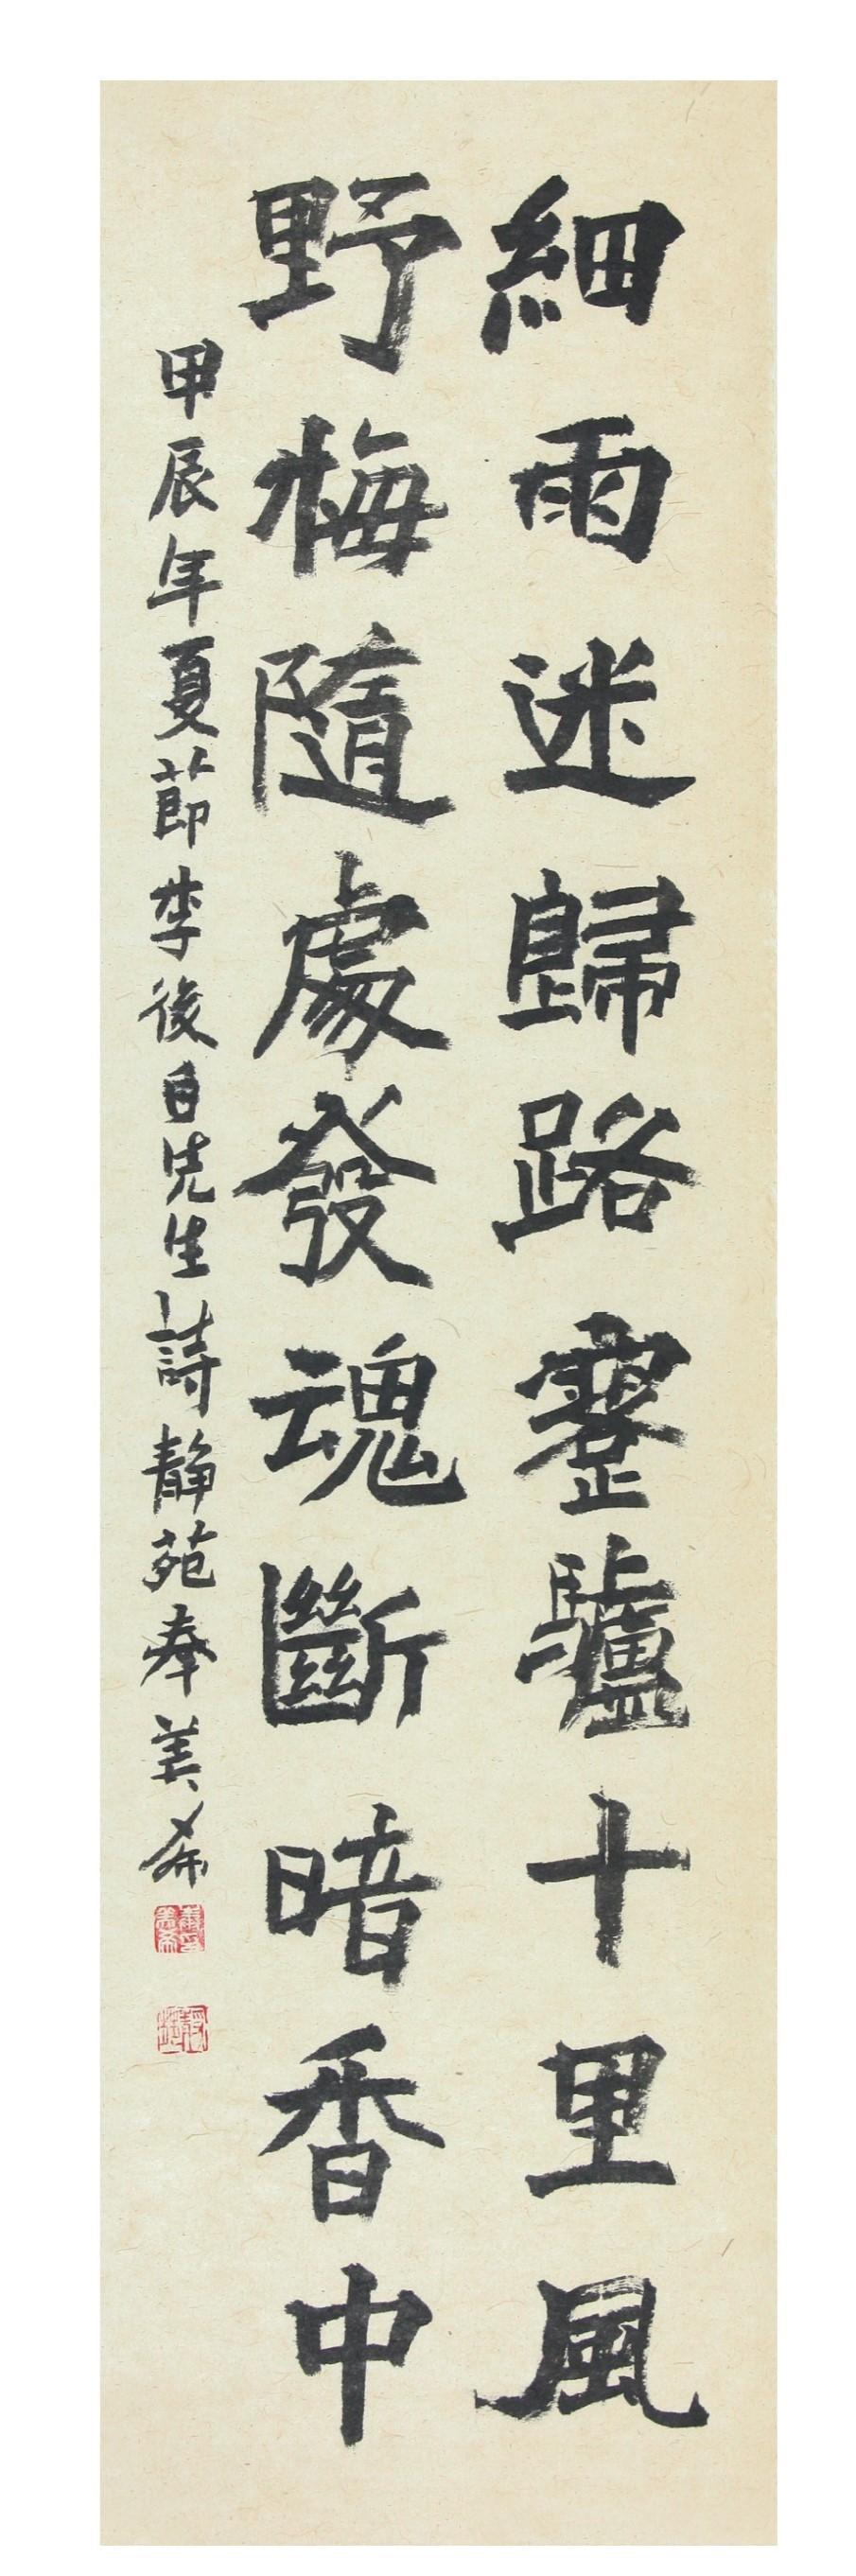 細雨迷歸路蹇驢十里風
野梅隨處發魂斷暗香中
甲辰年夏節李後白先生詩靜苑奉美希